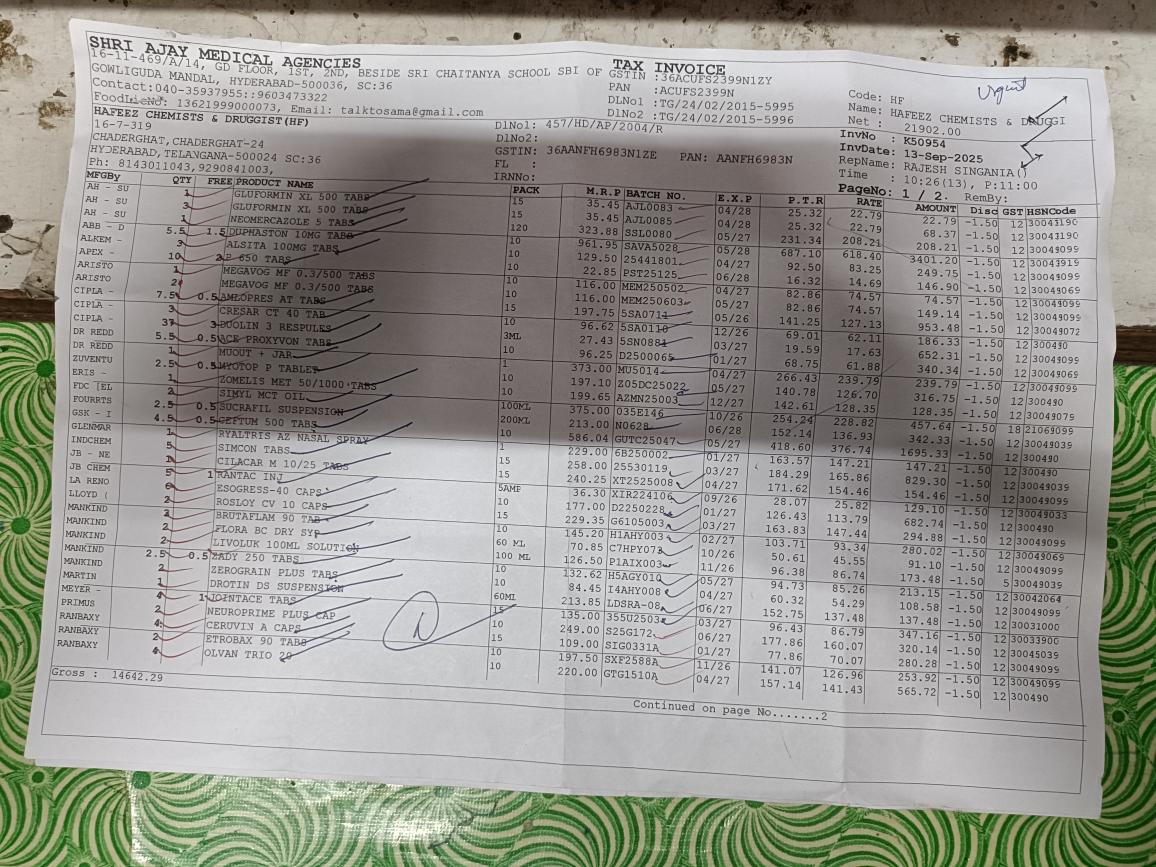 SHRI AJAY MEDICAL AGENCIES
16-11-469/A/14, GD FLOOR, 1ST, 2ND, BESIDE SRI CHAITANYA SCHOOL SBI OF
GOWLIGUDA MANDAL, HYDERABAD-500036, SC:36
Contact:040-35937955::9603473322
FoodLicNo: 13621999000073, Email: talktosama@gmail.com
TAX INVOICE
GSTIN :36ACUFS2399N1ZY
PAN :ACUFS2399N
DLNo1 :TG/24/02/2015-5995
DLNo2 :TG/24/02/2015-5996
Urgent
Code: HF
Name: HAFEEZ CHEMISTS & DRUGGI
Net : 21902.00
InvNo : K50954
InvDate: 13-Sep-2025
RepName: RAJESH SINGANIA()
Time : 10:26(13), P:11:00
PageNo: 1 / 2. RemBy:
HAFEEZ CHEMISTS & DRUGGIST(HF)
16-7-319
CHADERGHAT,CHADERGHAT-24
HYDERABAD,TELANGANA-500024 SC:36
Ph: 8143011043,9290841003,
DlNo1: 457/HD/AP/2004/R
DlNo2:
GSTIN: 36AANFH6983N1ZE PAN: AANFH6983N
FL :
IRNNo:
MFGBy QTY FREE PRODUCT NAME PACK M.R.P BATCH NO. E.X.P P.T.R RATE AMOUNT Disc GST HSNCode
AH - SU 1 GLUFORMIN XL 500 TABS 15 35.45 AJL0083 04/28 25.32 22.79 22.79 -1.50 12 30043190
AH - SU 3 GLUFORMIN XL 500 TABS 15 35.45 AJL0085 04/28 25.32 22.79 68.37 -1.50 12 30043190
AH - SU 1 NEOMERCAZOLE 5 TABS 120 323.88 SSL0080 05/27 231.34 208.21 208.21 -1.50 12 30049099
ABB - D 5.5 1.5 DUPHASTON 10MG TABS 10 961.95 SAVA5028 05/28 687.10 618.40 3401.20 -1.50 12 30043919
ALKEM - 3 ALSITA 100MG TABS 10 129.50 25441801 04/27 92.50 83.25 249.75 -1.50 12 30049099
APEX - 10 2 P 650 TABS 10 22.85 PST25125 06/28 16.32 14.69 146.90 -1.50 12 30049069
ARISTO 1 MEGAVOG MF 0.3/500 TABS 10 116.00 MEM250502 04/27 82.86 74.57 74.57 -1.50 12
ARISTO 2 MEGAVOG MF 0.3/500 TABS 10 116.00 MEM250603 05/27 82.86 74.57 149.14 -1.50 12 30049099
CIPLA - 7.5 0.5 AMLOPRES AT TABS 15 197.75 5SA0711 05/26 141.25 127.13 953.48 -1.50 12 30049072
CIPLA - 3 CRESAR CT 40 TAB 10 96.62 5SA0110 12/26 69.01 62.11 186.33 -1.50 12 300490
CIPLA - 37 3 DUOLIN 3 RESPULES 3ML 27.43 5SN0881 03/27 19.59 17.63 652.31 -1.50 12 30049099
DR REDD 5.5 0.5 ACE PROXYVON TABS 10 96.25 D2500065 01/27 68.75 61.88 340.34 -1.50 12
DR REDD 1 MUOUT + JAR 373.00 MU5014 04/27 266.43 239.79 239.79 -1.50 12 30049099
ZUVENTU 2.5 0.5 MYOTOP P TABLET 10 197.10 Z05DC25022 05/27 140.78 126.70 316.75 -1.50 12 300490
ERIS - 1 ZOMELIS MET 50/1000 TABS 10 199.65 AZMN25003 12/27 142.61 128.35 128.35 -1.50 12 30049079
FDC (EL 2 SIMYL MCT OIL 100ML 375.00 035E146 10/26 254.24 228.82 457.64 -1.50 18 21069099
FOURRTS 2.5 0.5 SUCRAFIL SUSPENSION 200ML 213.00 N0628 06/28 152.14 136.93 342.33 -1.50 12 30049039
GSK - I 4.5 0.5 CEFTUM 500 TABS 10 586.04 GUTC25047 05/27 418.60 376.74 1695.33 -1.50 12 300490
GLENMAR 1 RYALTRIS AZ NASAL SPRAY 1 229.00 6B250002 01/27 163.57 147.21 147.21 -1.50 12
INDCHEM 5 SIMCON TABS 15 258.00 25530119 03/27 184.29 165.86 829.30 -1.50 12 30049039
JB - NE 1 CILACAR M 10/25 TABS 15 240.25 XT2525008 04/27 171.62 154.46 154.46 -1.50 12 30049099
JB CHEM 5 1 RANTAC INJ 5AMP 36.30 XIR224106 09/26 28.07 25.82 129.10 -1.50 12 30049033
LA RENO 6 ESOGRESS-40 CAPS 10 177.00 D2250228 01/27 126.43 113.79 682.74 -1.50 12 300490
LLOYD ( 2 ROSLOY CV 10 CAPS 15 229.35 G6105003 03/27 163.83 147.44 294.88 -1.50 12 30049099
MANKIND 3 BRUTAFLAM 90 TAB 10 145.20 H1AHY003 02/27 103.71 93.34 280.02 -1.50 12 30049069
MANKIND 2 FLORA BC DRY SYP 60 ML 70.85 C7HPY073 10/26 50.61 45.55 91.10 -1.50 12
MANKIND 2 LIVOLUK 100ML SOLUTION 100 ML 126.50 P1AIX003 11/26 96.38 86.74 173.48 -1.50 5 30049039
MANKIND 2.5 0.5 ZADY 250 TABS 10 132.62 H5AGY010 05/27 94.73 85.26 213.15 -1.50 12 30042064
MANKIND 2 ZEROGRAIN PLUS TABS 10 84.45 I4AHY008 04/27 60.32 54.29 108.58 -1.50 12 30049099
MARTIN 1 DROTIN DS SUSPENSION 60ML 213.85 LDSRA-08 06/27 152.75 137.48 137.48 -1.50 12 30031000
MEYER - 4 1 JOINTACE TABS 15 135.00 355U2503 03/27 96.43 86.79 347.16 -1.50 12 30033900
PRIMUS 2 NEUROPRIME PLUS CAP 10 249.00 S25G172 06/27 177.86 160.07 320.14 -1.50 12 30045039
RANBAXY 4 CERUVIN A CAPS 15 109.00 SIG0331A 01/27 77.86 70.07 280.28 -1.50 12 30049099
RANBAXY 2 ETROBAX 90 TABS 10 197.50 SXF2588A 11/26 141.07 126.96 253.92 -1.50 12 30049099
RANBAXY 4 OLVAN TRIO 20 10 220.00 GTG1510A 04/27 157.14 141.43 565.72 -1.50 12 300490
Gross : 14642.29
Continued on page No.......2